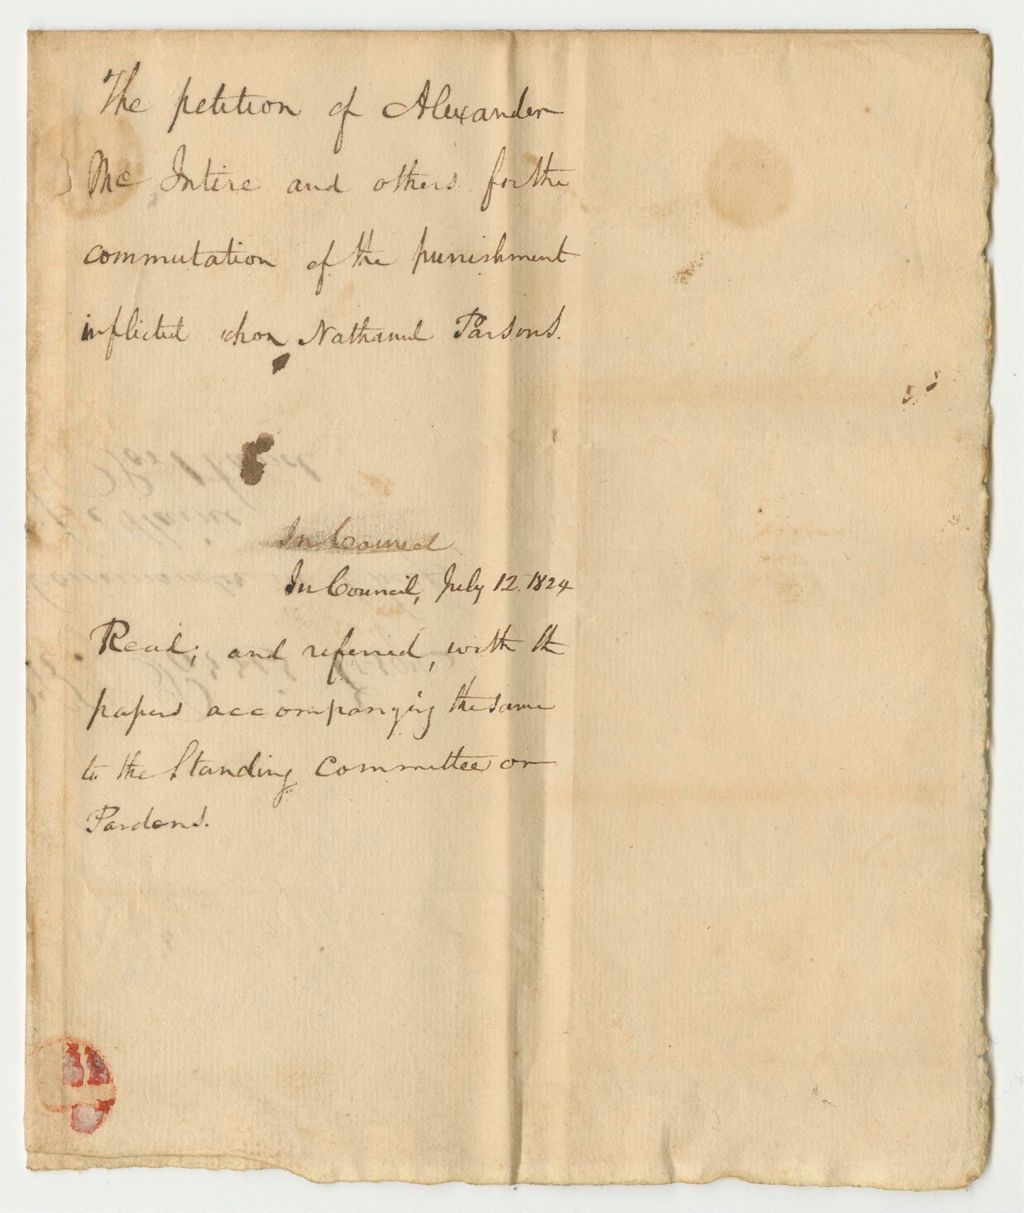 The petition of Alexander
Mc Intire and others for the
commutation of the punishment
inflicted upon Nathaniel Parsons.
In Council
In Council, July 12. 1824
Read; and referred, with the
papers accompanying the same
to the Standing Committee on
Pardons.